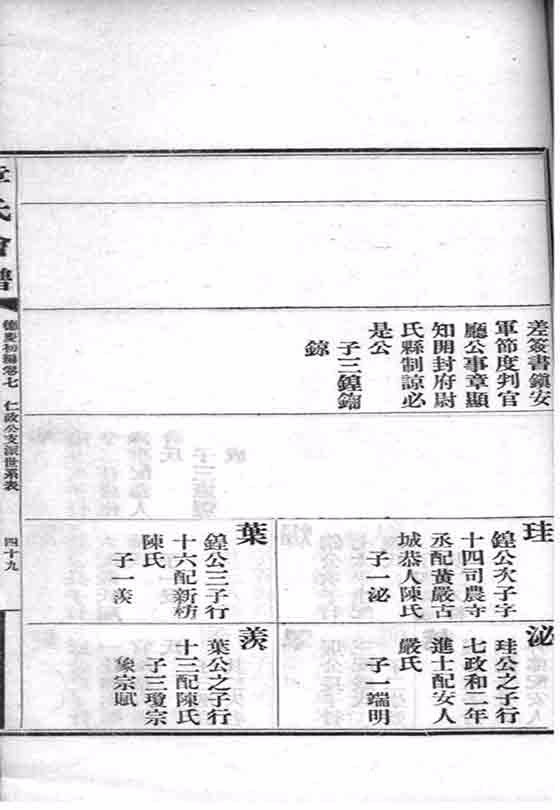 差簽書鎮安
軍節度判官
廳公事章顯
知開封府尉
氏縣制諒必
是公
子三鍠鏥
鍄
珪
鍠公次子字
十四司農寺
丞配黃嚴古
城恭人陳氏
子一泌
葉
鍠公三子行
十六配新枋
陳氏
子一羨
泌
珪公之子行
七政和二年
進士配安人
嚴氏
子一端明
羨
葉公之子行
十三配陳氏
子三瓊宗
象宗賦
章氏會譜
德慶初編卷七
仁政公支派世系表
四十九